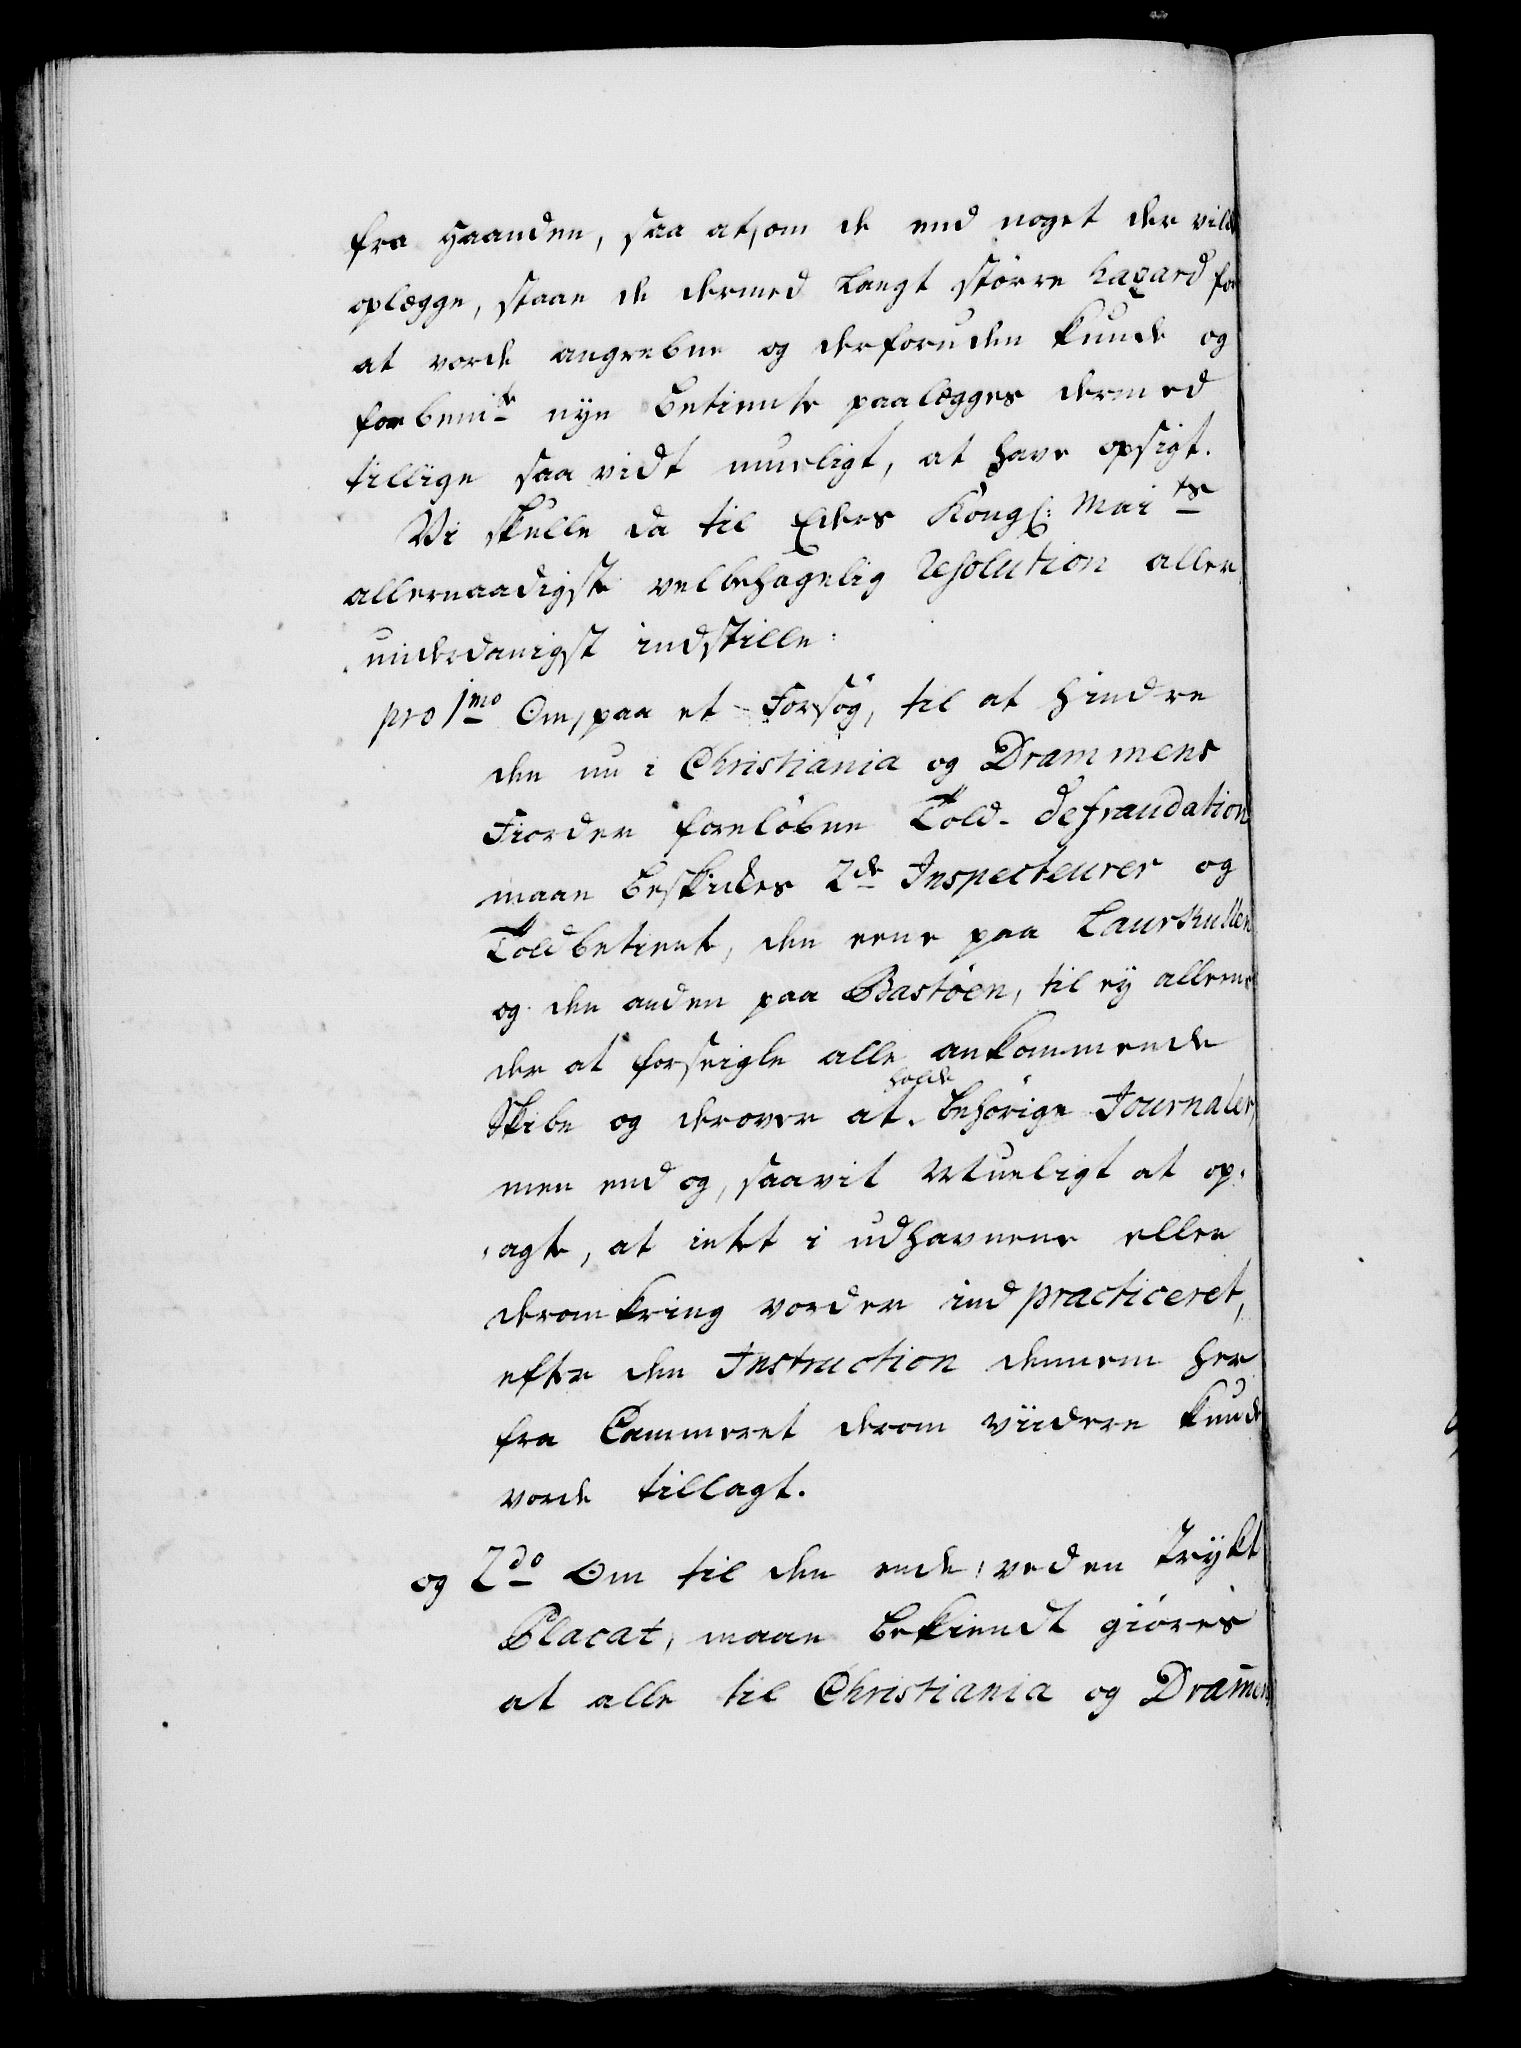 fra Haanden, saa at, om de end noget der vilde
oplegge, staae de dermed langt större hazard for
at vorde angrebne og desforuden kunde og
forbem:te nye Betiente paalegges dermed
tillige saa vidt mueligt, at have opsigt.
Vi skulle da til Eders Kongl: Mai:ts
allernaadigste velbehagelig Resolution aller
underdanigst indstille:
pro 1mo Om, paa et Forsøg, til at hindre
den nu i Christiania og Drammens
Fiorder foreløbne Told-defraudation
maae beskikkes 2de Inspecteurer og
Toldbetiente, den eene paa Laurkullen
og den anden paa Bastöen, til ey alleene
der at forseigle alle ankommende
Skibe og derover at holde behörige Journaler,
men end og, saavit Mueligt at op-
agte, at intet i udhavnene eller
deromkring vorder indpracticeret,
efter den Instruction dennem her
fra Cammeret derom viidere kunde
vorde tillagt.
og 2do Om til den ende, ved en Trykt
Placat, maae bekiendt giöres
at alle til Christiania og Dram̄en